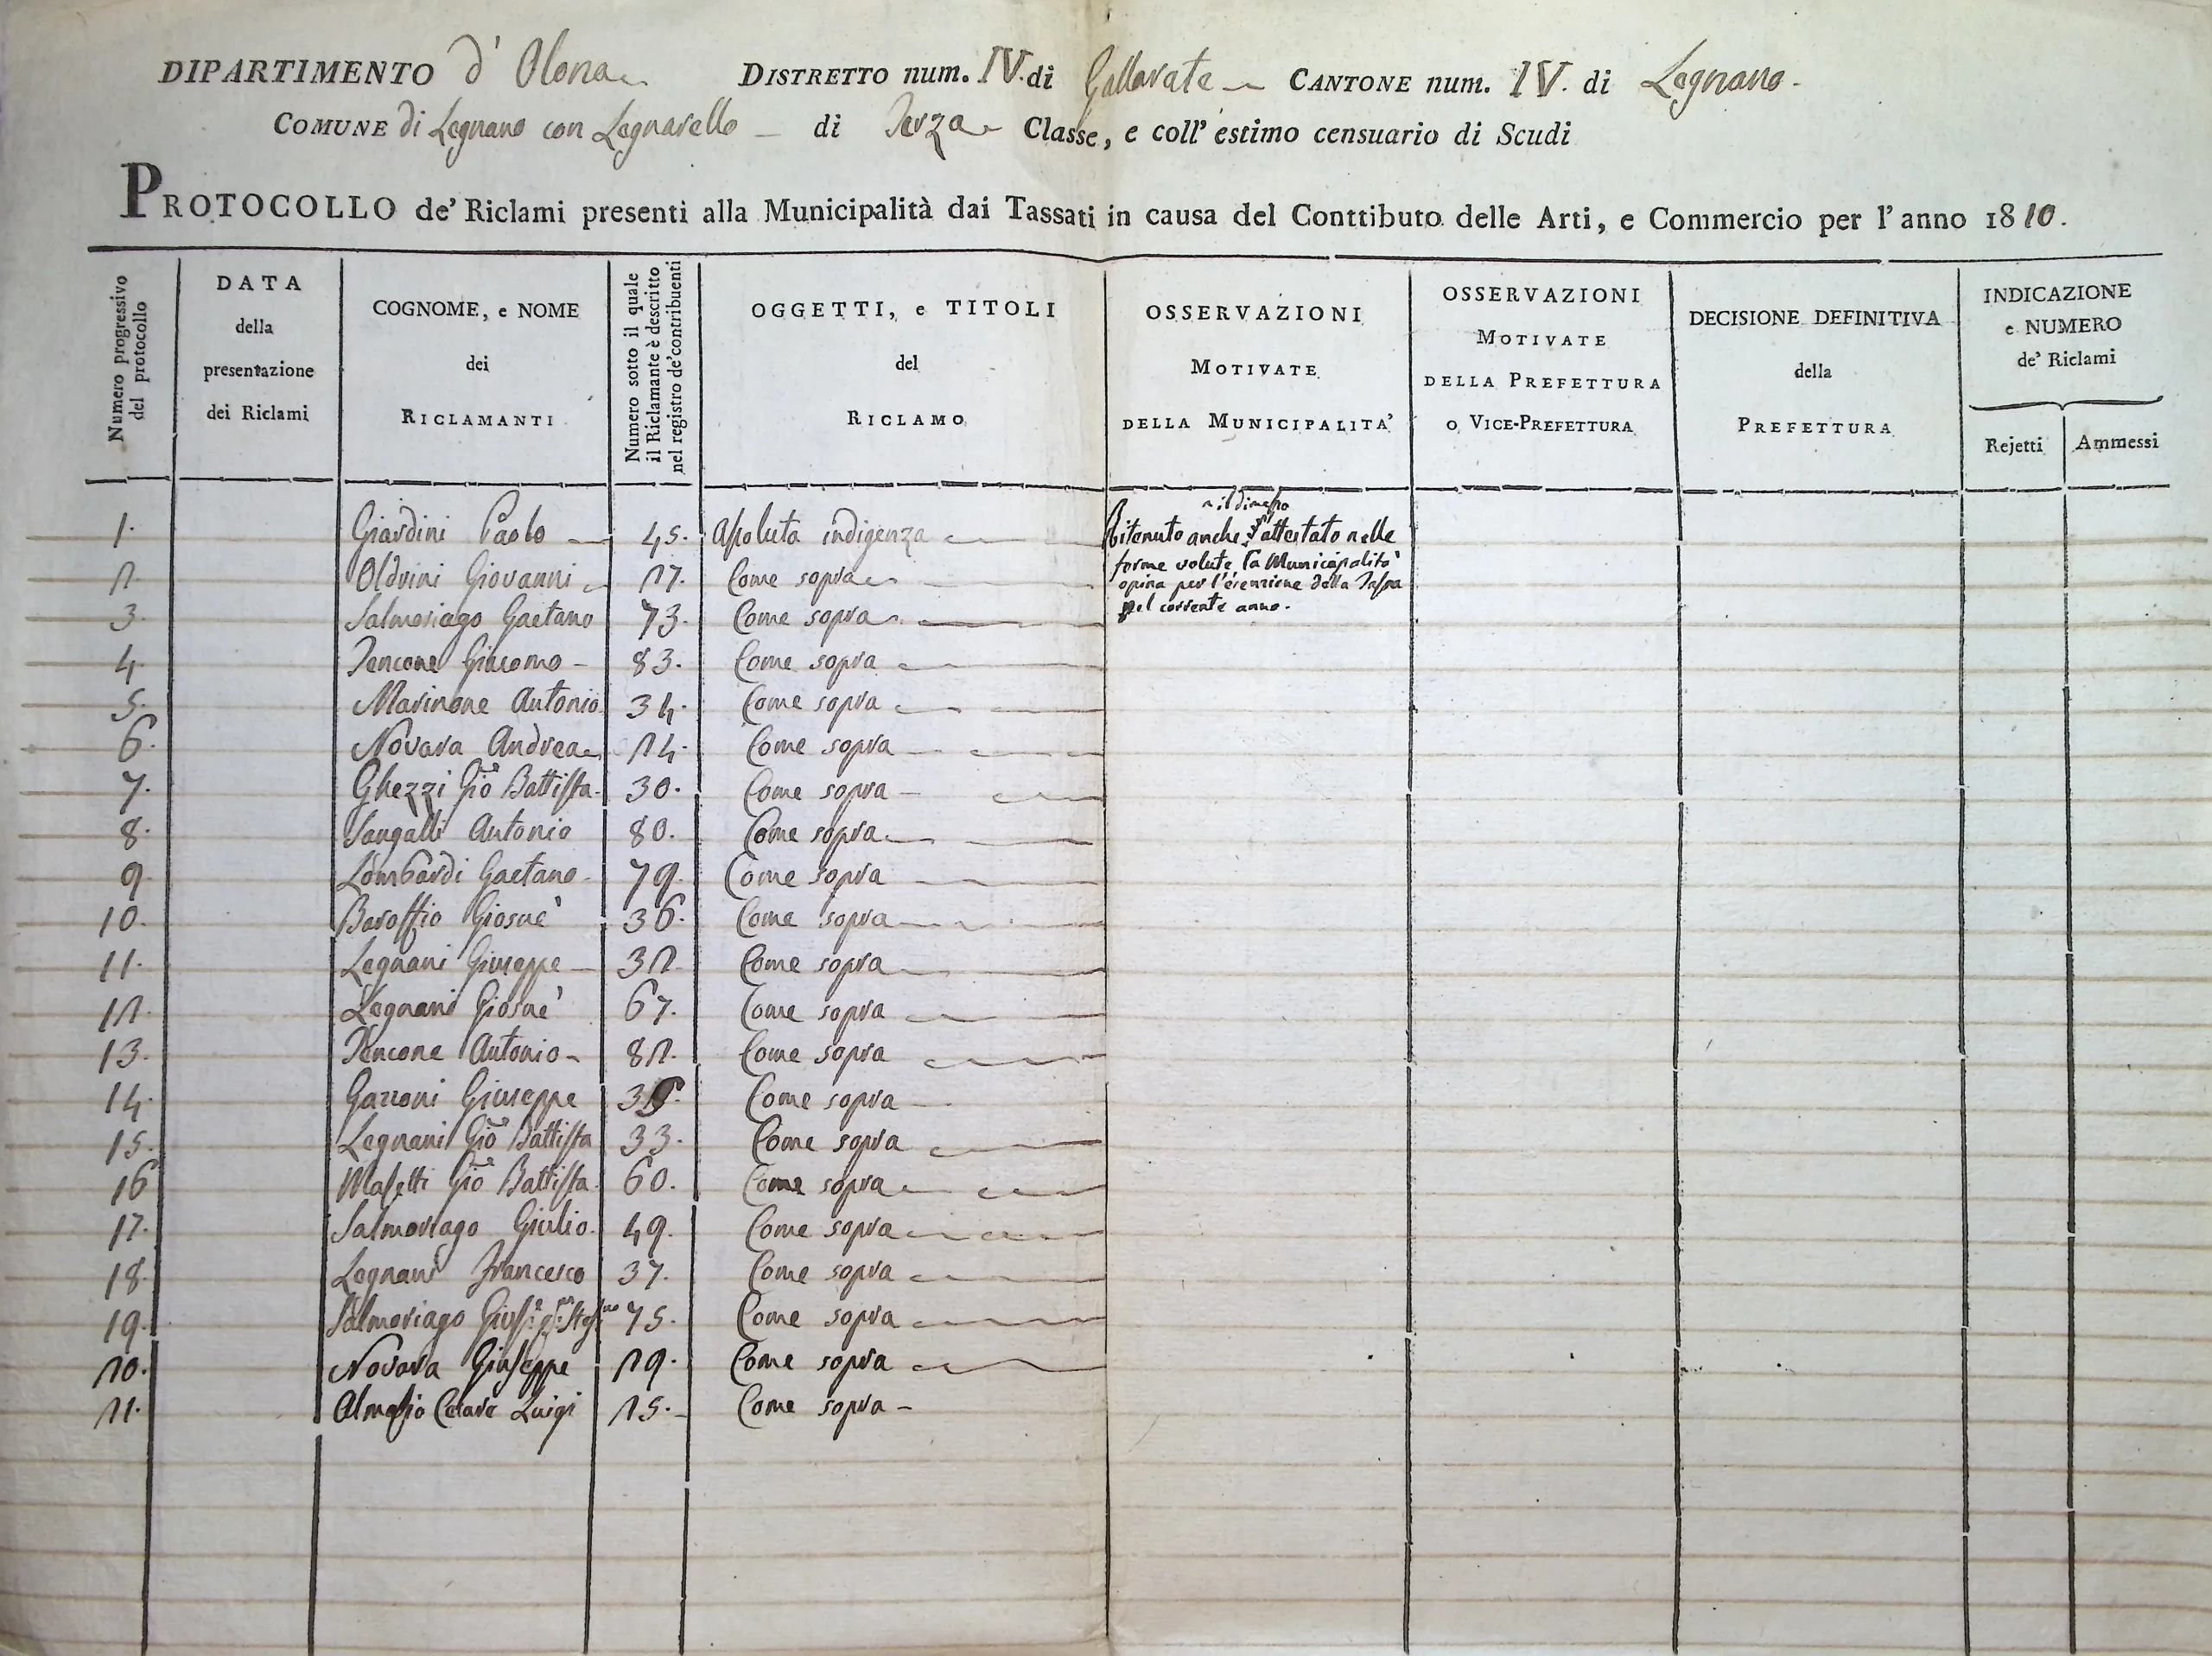 DIPARTIMENTO d' Olona DISTRETTO num. IV. di Gallarate CANTONE num. IV. di Legnano.
COMUNE di Legnano con Legnarello di Terza Classe, e coll' estimo censuario di Scudi
PROTOCOLLO de' Riclami presenti alla Municipalità dai Tassati in causa del Conttibuto delle Arti, e Commercio per l' anno 1810.
Numero progressivo
del protocollo
DATA
della
presentazione
dei Riclami
COGNOME, e NOME
dei
RICLAMANTI
Numero sotto il quale
il Riclamante è descritto
nel registro de' contribuenti
OGGETTI, e TITOLI
del
RICLAMO
OSSERVAZIONI
MOTIVATE
DELLA MUNICIPALITA'
OSSERVAZIONI
MOTIVATE
DELLA PREFETTURA
o VICE-PREFETTURA
DECISIONE DEFINITIVA
della
PREFETTURA
INDICAZIONE
e NUMERO
de' Riclami
Rejetti Ammessi
1. Giardini Paolo 45. Assoluta indigenza
Ritenuto anche il dimesso attestato nelle
forme volute la Municipalità
opina per l'esenzione della Tassa
pel corrente anno.
2 Oldrini Giovanni 27. Come sopra
3. Salmoriago Gaetano 73. Come sopra
4. Pencone Giacomo 83. Come sopra
5. Marinone Antonio 34. Come sopra
6. Novara Andrea 24. Come sopra
7. Ghezzi Gio Battista 30. Come sopra
8. Sangalli Antonio 80. Come sopra
9. Lombardi Gaetano 79. Come sopra
10. Baroffio Giosuè 36. Come sopra
11. Legnani Giuseppe 32. Come sopra
12. Legnani Giosuè 67. Come sopra
13. Pencone Antonio 82. Come sopra
14. Gazzoni Giuseppe Come sopra
15. Legnani Gio Battista 33. Come sopra
16 Masetti Gio Battista 60. Come sopra
17. Salmoriago Giulio 49. Come sopra
18. Legnani Francesco 37. Come sopra
19. Salmoriago 75. Come sopra
20. Novara Giuseppe 29. Come sopra
21. Almasio Luigi 25. Come sopra